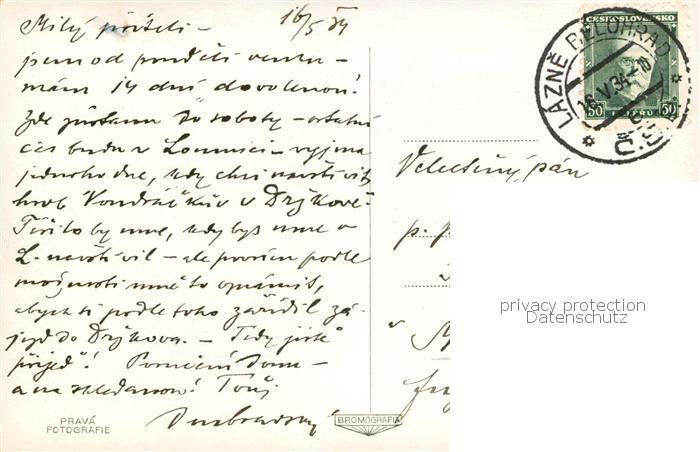 16/5 34
Milý příteli -
jsem od pondělí venku -
mám 14 dní dovolenou!
Zde zůstanu do soboty - ostatní
čas budu v Lomnici - vyjma
jednoho dne, kdy chci navštívit
hrob Vondráčkův v Držkově.
Těšilo by mne, kdybys mne v
L. navštívil - ale prosím podle
možnosti mně to oznámit,
abych si podle toho zařídil zá-
jezd do Držkova. - Tedy jistě
přijeď! Poručení domu -
a na shledanou! Tvůj
PRAVÁ
FOTOGRAFIE
BROMOGRAFIA
ČESKOSLOVENSKO
50 HALÉŘŮ 50
LÁZNĚ BĚLOHRAD
16.V.34-10
Č.S.R.
Velectěný pán
p. p.
privacy protection
Datenschutz